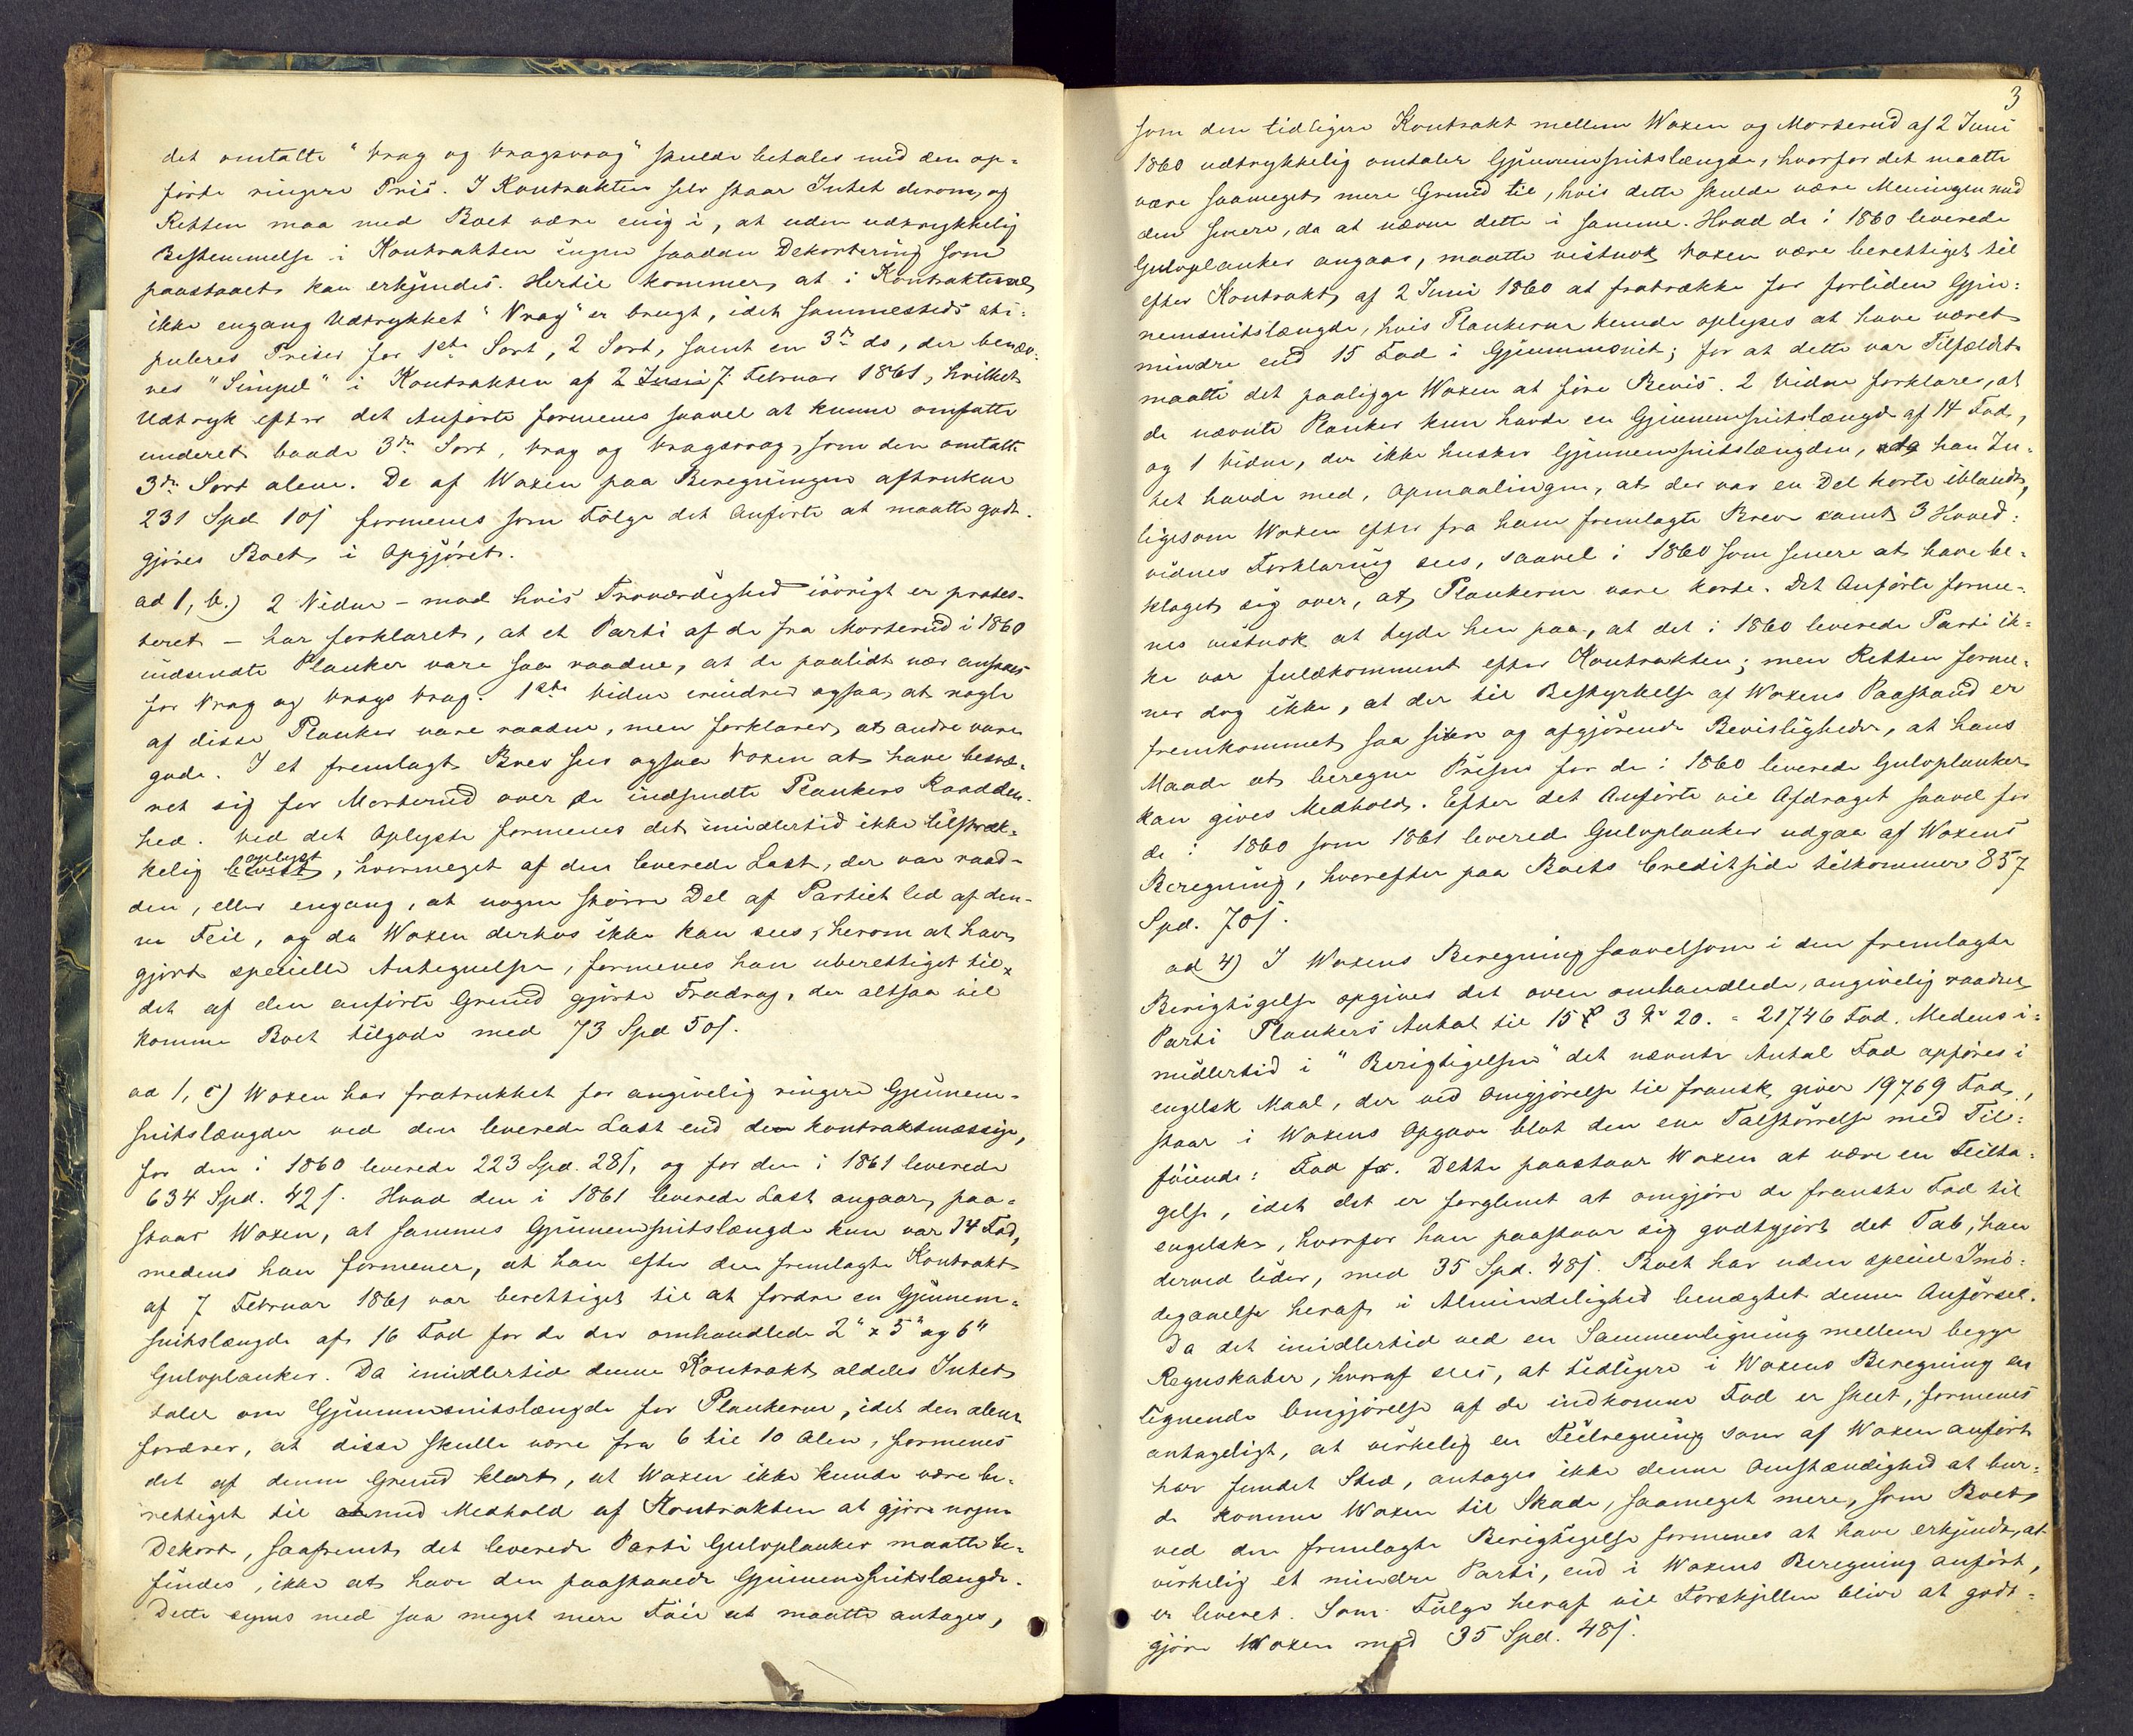 det omtalte "Vrag og Vragsvrag" skulde betales med den op-
førte ringere Pris. I Kontrakten selv staar Intet derom, og
Retten maa med Boet være enig i, at uden udtrykkelig
Bestemmelse i Kontrakten ingen saadan Dekortering som
paastaaet kan erkjendes. Hertil kommer, at i Kontrakterne
ikke engang Udtrykket "Vrag" er brugt, idet sammesteds sti-
puleres Priser for 1ste Sort, 2 Sort, samt en 3die do, der benæv-
nes "Simpel" i Kontrakten af 2 Juni 7 Februar 1861, hvilket
Udtryk efter det Anførte formenes saavel at kunne omfatte
underet baade 3die Sort, Vrag og Vragsvrag, som den omtalte
3die Sort alene. De af Woxen paa Beregningen aftrukne
231 Spd 10 s formenes som Følge det Anførte at maatte godt-
gjøres Boet i Opgjøret.
ad 1, b.) 2 Vidner - mod hvis Troværdighed iøvrigt er protes-
teret - har forklaret, at et Parti af de fra Morterud i 1860
indsendte Planker vare saa raadne, at de paalidt nær ansaaes
for Vrag og Vrags Vrag. 1ste Vidne erindrer ogsaa, at nogle
af disse Planker vare raadne, men forklarer, at andre vare
gode. I et fremlagt Brev sees ogsaa Woxen at have besvæ-
ret sig for Morterud over de indsendte Plankers Raadden-
hed. Ved det Oplyste formenes det imidlertid ikke tilstræk-
kelig bevist oplyst, hvormeget af den leverede Last, der var raad-
den, eller engang, at nogen større Del af Partiet led af den-
ne Feil, og da Woxen derhos ikke kan sees, herom at have
gjort specielle Antegnelser, formenes han uberettiget til
det af den anførte Grund gjorte Fradrag, der altsaa vil
komme Boet tilgode med 73 Spd 50 s.
ad 1, c) Woxen har fratrukket for angivelig ringere Gjennem-
snitslængder ved den leverede Last end den kontraktmæssige,
for den i 1860 leverede 223 Spd. 28 s, og for den i 1861 leverede
634 Spd. 42 s. Hvad den i 1861 leverede Last angaar, paa-
staar Woxen, at sammes Gjennemsnitslængde kun var 14 Fod,
medens han formener, at han efter den fremlagte Kontrakt
af 7 Februar 1861 var berettiget til at fordre en Gjennem-
snitslængde af 16 Fod for de der omhandlede 2" x 5" og 6"
Gulvplanker. Da imidlertid denne Kontrakt aldeles Intet
taler om Gjennemsnitslængde for Plankerne, idet den alene
fordrer, at disse skulle være fra 6 til 10 Alen, formenes
det af denne Grund klart, at Woxen ikke kunde være be-
rettiget til at med Medhold af Kontrakten at gjøre nogen
Dekort, saafremt det leverede Parti Gulvplanker maatte be-
findes, ikke at have den paastaaede Gjennemsnitslængde.
Dette synes med saa meget mere Føie at maatte antages,
3
som den tidligere Kontrakt mellem Woxen og Morterud af 2 Juni
1860 udtrykkelig omtaler Gjennemsnitslængde, hvorfor det maatte
være saameget mere Grund til, hvis dette skulde være Meningen med
den senere, da at nævne dette i samme. Hvad de i 1860 leverede
Gulvplanker angaar, maatte vistnok Woxen være berettiget til
efter Kontrakt af 2 Juni 1860 at fratrække for forliden Gjen-
nemsnitslængde, hvis Plankerne kunde oplyses at have været
mindre end 15 Fod i Gjennemsnit; for at dette var Tilfældet
maatte det paaligge Woxen at føre Bevis. 2 Vidner forklarer, at
de nævnte Planker kun havde en Gjennemsnitslængde af 14 Fod,
og 1 Vidne, der ikke husker Gjennemsnitslængden, da han In-
tet havde med Opmaalingen, at der var en Del korte iblandt,
ligesom Woxen efter fra ham fremlagte Breve samt 3 Hoved-
vidnes Forklaring sees, saavel i 1860 som senere at have be-
klaget sig over, at Plankerne vare korte. Det Anførte forme-
nes vistnok at tyde hen paa, at det i 1860 leverede Parti ik-
ke var fuldkomment efter Kontrakten; men Retten forme-
ner dog ikke, at der til Bestyrkelse af Woxens Paastand er
fremkommet saa sikre og afgjørende Bevisligheder, at hans
Maade at beregne Prisen for de i 1860 leverede Gulvplanker
kan gives Medhold. Efter det Anførte vil Afdraget saavel for
de i 1860 som 1861 leverede Gulvplanker udgaa af Woxens
Beregning, hvorefter paa Boets Creditside tilkommer 857
Spd. 70 s.
ad 4) I Woxens Beregning saavelsom i den fremlagte
Berigtigelse opgives det oven omhandlede, angivelig raadne
Parti Plankers Antal til 15 3 20. = 21746 Fod. Medens i-
midlertid i "Berigtigelsen" det nævnte Antal Fod opføres i
engelsk Maal, der ved Omgjørelse til fransk giver 19769 Fod,
staar i Woxens Opgave blot den ene Talstørrelse med Til-
føiende: Fod fr. Dette paastaar Woxen at være en Feilta-
gelse, idet det er forglemt at omgjøre de franske Fod til
engelske, hvorfor han paastaar sig godtgjort det Tab, han
derved lider, med 35 Spd. 48 s. Boet har uden speciel Imø-
degaaelse heraf i Almindelighed benægtet denne Anførsel.
Da det imidlertid ved en Sammenligning mellem begge
Regnskaber, hvoraf sees, at tidligere i Woxens Beregning en
lignende Omgjørelse af de indkomne Fod er skeet, formenes
antageligt, at virkelig en Feilregning som af Woxen anført
har fundet Sted, antages ikke denne Omstændighed at bur-
de komme Woxen til Skade, saameget mere, som Boet
ved den fremlagte Berigtigelse formenes at have erkjendt, at
virkelig et mindre Parti, end i Woxens Beregning anført,
er leveret. Som Følge heraf vil Forskjellen blive at godt-
gjøre Woxen med 35 Spd. 48 s.